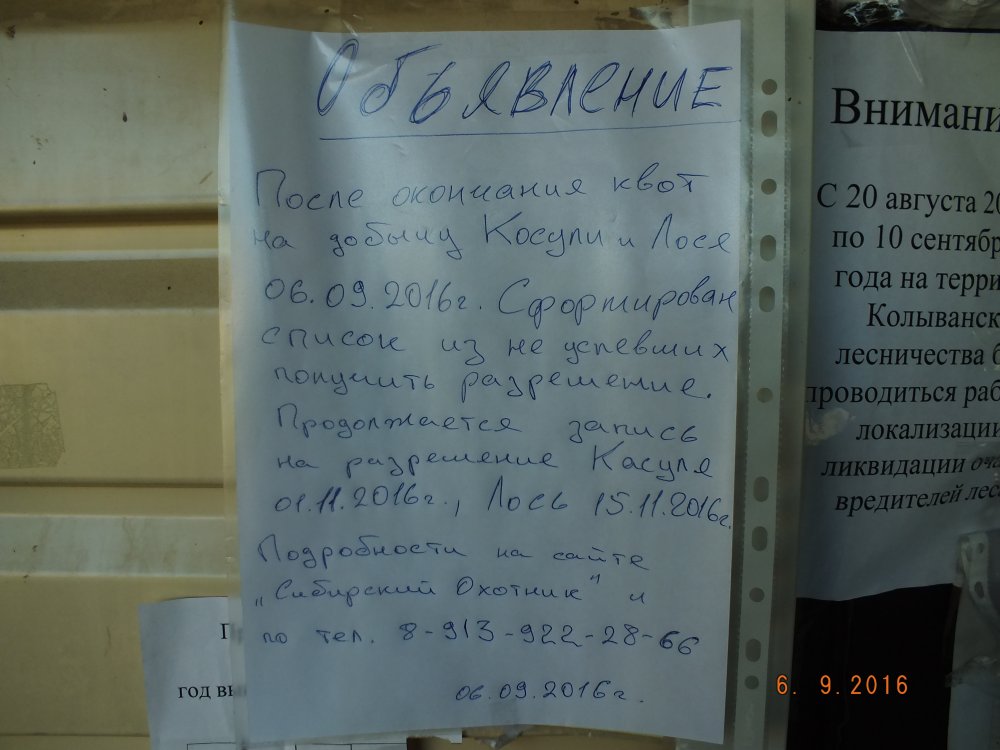 Объявление
После окончания квот
на добычу Косули и Лося
06.09.2016г. Сформирован
список из не успевших
получить разрешение.
Продолжается запись
на разрешение Касуля
01.11.2016г., Лось 15.11.2016г.
Подробности на сайте
„Сибирский Охотник" и
по тел. 8-913-922-28-66
06.09.2016г.
Внимани
С 20 августа 20
по 10 сентябр
года на терри
Колыванск
лесничества б
проводиться раб
локализации
ликвидации оча
вредителей лес
П
год вн
6. 9.2016